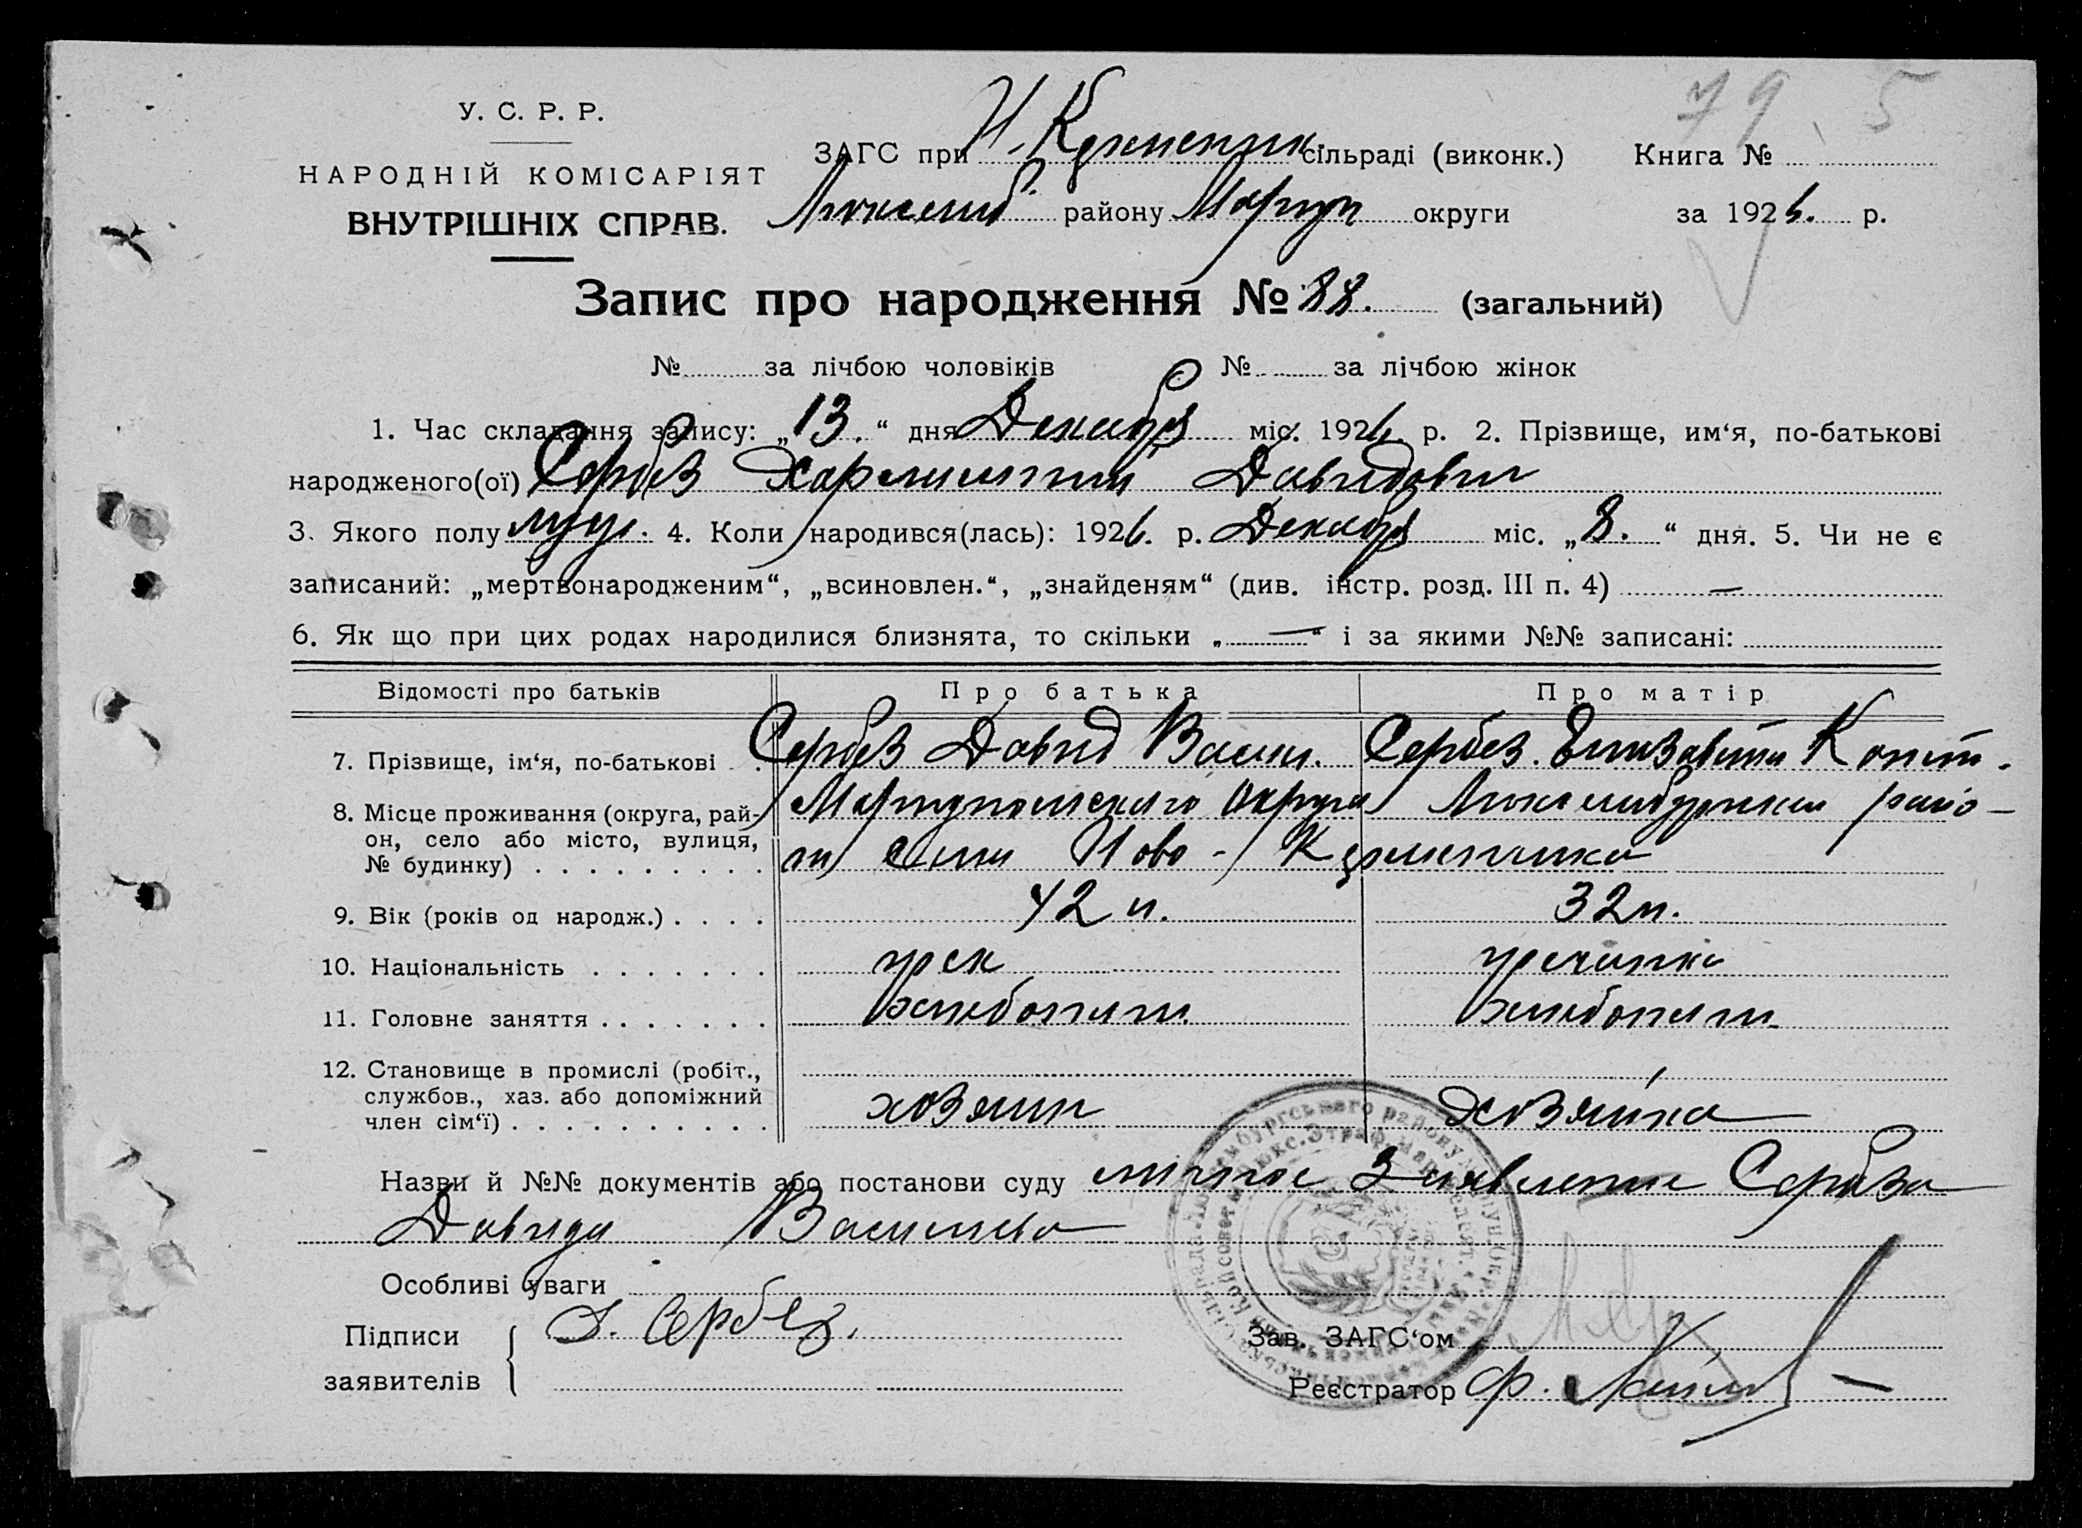 79. 5
У. С. Р. Р.
НАРОДНІЙ КОМІСАРІЯТ
ВНУТРІШНІХ СПРАВ.
ЗАГС при Н. Керменчик. сільраді (виконк.) Книга №
Люксемб. району Маріуп округи за 1926. р.
Запис про народження № 88. (загальний)
№ за лічбою чоловіків № за лічбою жінок
1. Час складання запису: „13.“ дня Декабря міс. 1926. р. 2. Прізвище, им‘я, по-батькові
народженого(ої) Сербез Харлампий Давидович
3. Якого полу муж. 4. Коли народився(лась): 1926. р. Декабря міс. „8.“ дня. 5. Чи не є
записаний: „мертвонародженим“, „всиновлен.“, „знайденям“ (див. інстр. розд. III п. 4) —
6. Як що при цих родах народилися близнята, то скільки „—“ і за якими №№ записані:
Відомості про батьків Про батька Про матір
7. Прізвище, ім‘я, по-батькові Сербез Давид Васил. Сербез. Елизавета Конст.
8. Місце проживання (округа, рай- Мариупольского округа Люксембургский райо-
он, село або місто, вулиця,
№ будинку) н село Ново-Керменчик
9. Вік (років од народж.) 42 л. 32 л.
10. Національність грек гречанка
11. Головне заняття хлебопаш. хлебопаш.
12. Становище в промислі (робіт.,
службов., хаз. або допоміжний
член сім‘ї) хозяин хозяйка
Назви й №№ документів або постанови суду личное заявление Сербеза
Давида Васильева
Особливі уваги
Підписи Д. Сербез. Зав. ЗАГС‘ом
заявителів Реєстратор Ф.